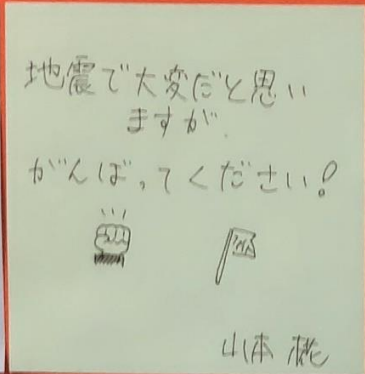 地震で大変だと思い
ますが、
がんばってください!
山本 桃